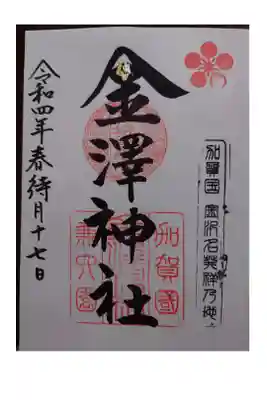 加賀国 金沢名発祥乃地
金澤神社
加賀國
兼六園
令和四年春待月十七日